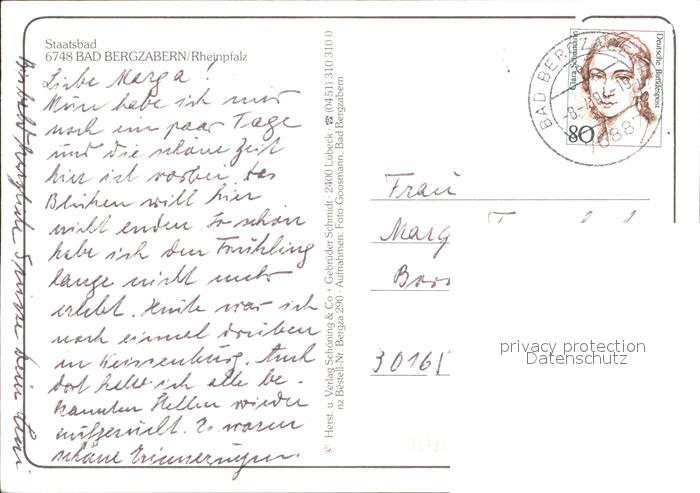 Staatsbad
6748 BAD BERGZABERN/Rheinpfalz
Liebe Marga!
Nun habe ich nur
noch ein paar Tage
und die schöne Zeit
hier ist vorbei. Das
Blühen will hier
nicht enden. So schön
habe ich den Frühling
lange nicht mehr
erlebt. Heute war ich
noch einmal drüben
in Weissenburg. Auch
dort habe ich alle be-
kannten Stellen wieder
aufgesucht. Es waren
schöne Erinnerungen.
Grüsse
© Herst. u. Verlag Schöning & Co + Gebrüder Schmidt · 2400 Lübeck · ☎ (0451) 310 310 0
nz Bestell-Nr. Bergza 290 · Aufnahmen: Foto-Goosmann, Bad Bergzabern
Clara Schumann
Deutsche Bundespost
80
BAD BERGZABERN
Frau
Marg
30161
privacy protection
Datenschutz